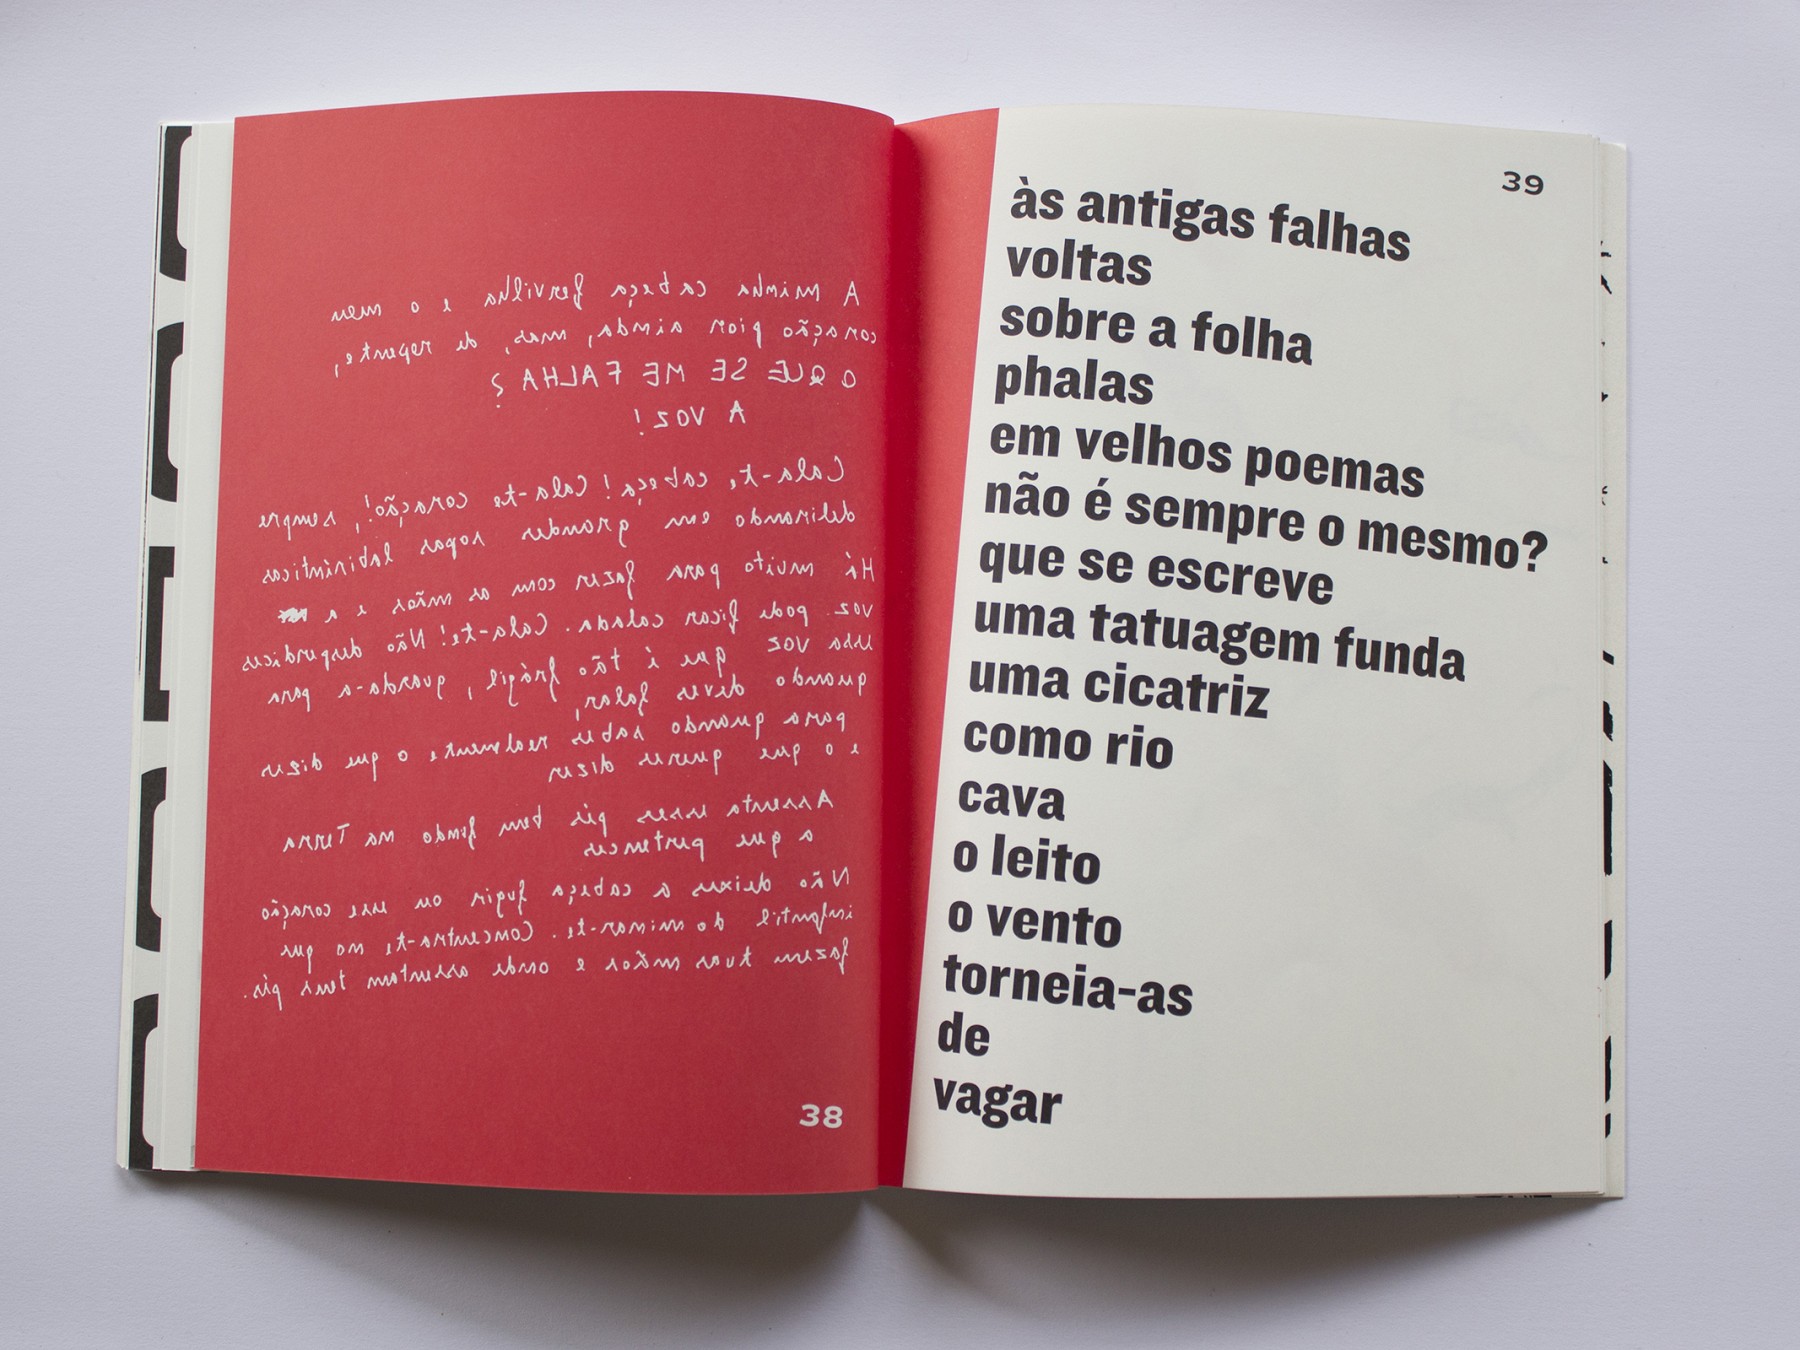 A minha cabeça fervilha e o meu
coração pior ainda, mas, de repente,
O QUE SE ME FALHA?
A VOZ!
Cala-te, cabeça! Cala-te coração!, sempre
delirando em grandes sopas labirínticas
Há muito para fazer com as mãos e a
voz pode ficar calada. Cala-te! Não desperdices
essa voz que é tão frágil, guarda-a para
quando deves falar,
para quando sabes realmente o que dizes
e o que queres dizer
Assenta esses pés bem fundo na Terra
a que pertences
Não deixes a cabeça fugir ou esse coração
infantil dominar-te. Concentra-te no que
fazem tuas mãos e onde assentam teus pés.
38
39
às antigas falhas
voltas
sobre a folha
phalas
em velhos poemas
não é sempre o mesmo?
que se escreve
uma tatuagem funda
uma cicatriz
como rio
cava
o leito
o vento
torneia-as
de
vagar